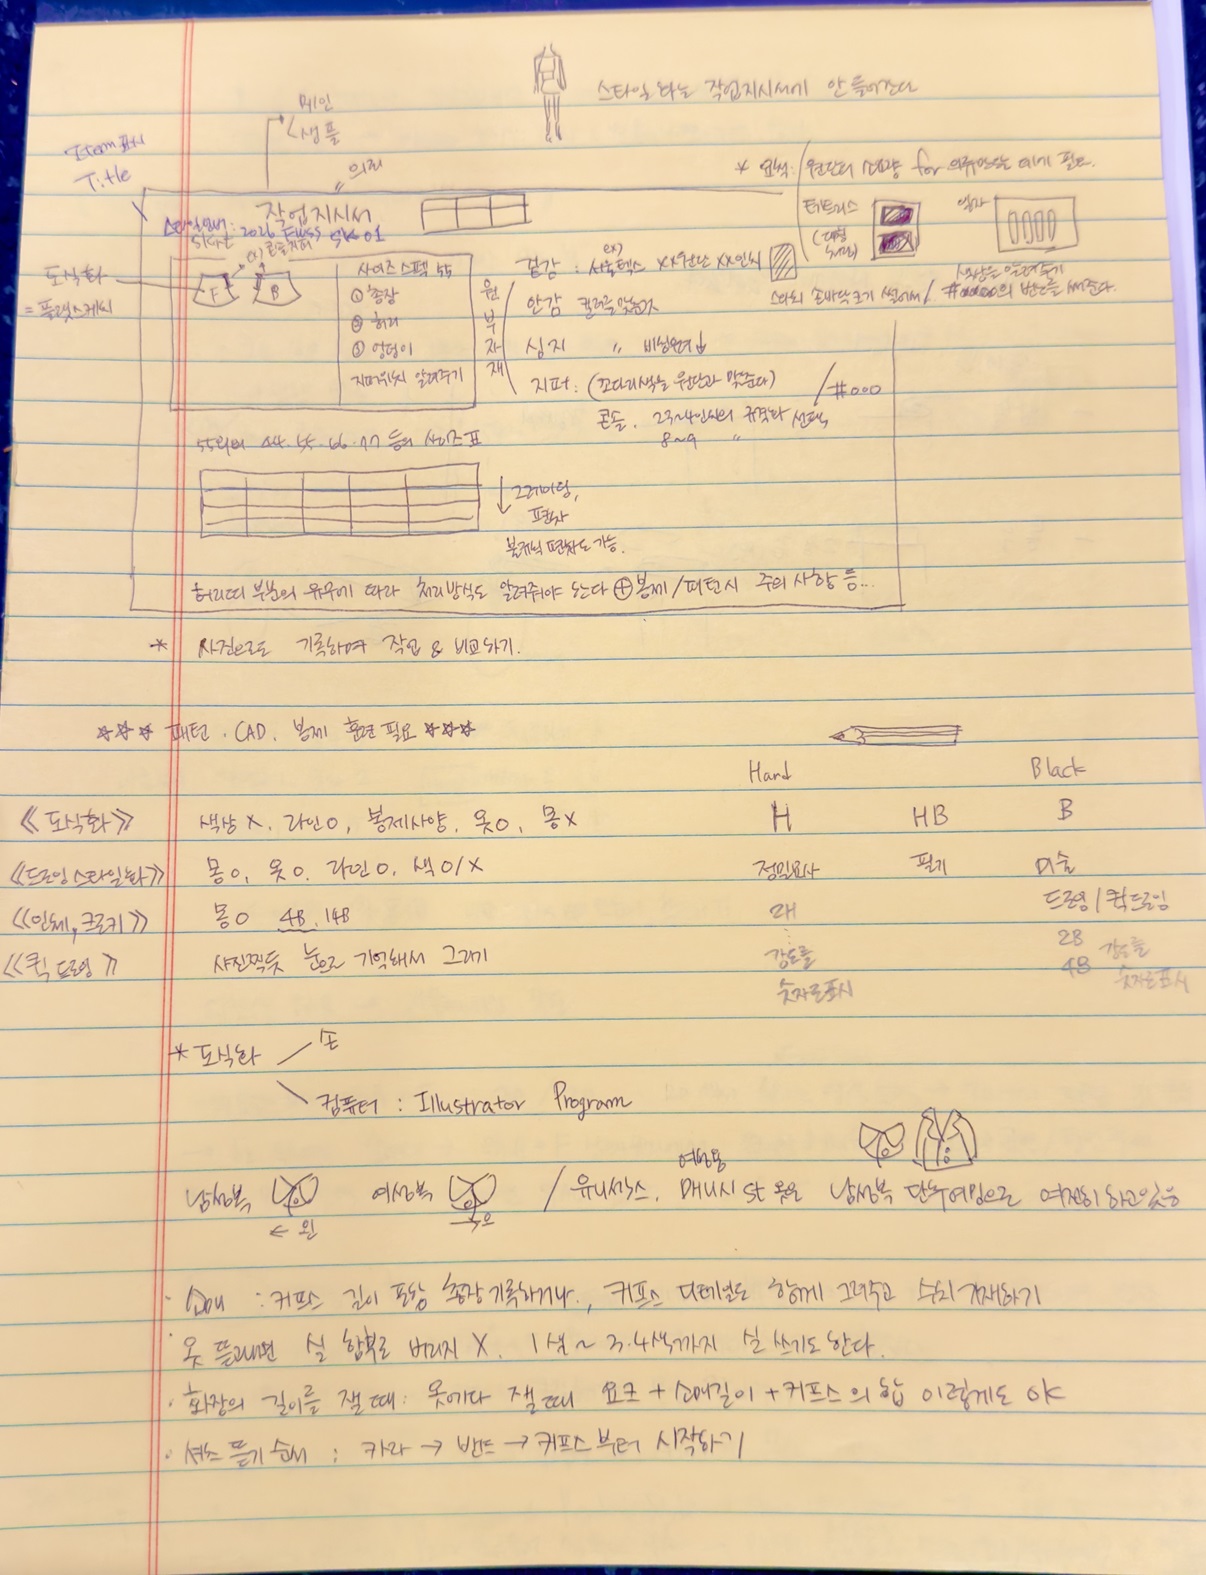 스타일화는 작업지시서에 안 들어간다
메인
샘플
Item 표시
Title
의뢰
* 요척: 원단의 소요량 for 의류만드는 데에 필요.
작업지시서
스타일넘버: 2026 F/W SS SK 01
skirt
ex) 콘솔지퍼
도식화
= 플랫스케치
F
B
사이즈 스펙 55
① 총장
② 허리
③ 엉덩이
지퍼위치 알려주기
원
부
자
재
ex)
겉감 : 서울텍스 XX원단 XX인치
안감 컬러를 맞출것
심지 〃 비싱
지퍼: (꼬다리색을 원단과 맞춘다) / #000
콘솔. 23~4인치의 규격화 선택
8~9 〃
테트리스
색상을 알려주기
스와치 손바닥 크기 썰어서 / 의 번호를 써준다.
55외의 44. 55. 66. 77 등의 사이즈 표
↓ 그레이딩,
편차
불규칙 편차도 가능.
허리띠 부분의 유무에 따라 처리방식도 알려줘야 한다 ⊕ 봉제/패턴시 주의 사항 등...
* 사진으로도 기록하여 작업 & 비교하기.
☆☆☆ 패턴. CAD. 봉제 훈련 필요 ☆☆☆
Hard
Black
《도식화》 색상 X, 라인 O, 봉제사양, 옷 O, 몸 X
H
HB
B
《드로잉 스타일화》 몸 O, 옷 O. 라인 O, 색 O/X
정밀묘사
필기
미술
《인체, 크로키》 몸 O 4B, 14B
2H
드로잉 / 퀵드로잉
《퀵 드로잉》 사진찍듯 눈으로 기억해서 그리기
강도를
숫자로 표시
2B
4B
강도를
숫자로 표시
* 도식화
손
컴퓨터 : Illustrator Program
남성복
← 왼
여성복
오
/ 유니섹스, 여성용 매니시 st 옷은 남성복 단추여밈으로 여전히 하고있음
· 소매 : 커프스 길이 포함 총장기록하거나, 커프스 디테일도 함께 그려주고 수치 기재하기
· 옷 뜯어내면 실 함부로 버리지 X. 1색 ~ 3.4색까지 실 쓰기도 한다.
· 화장의 길이를 잴 때: 옷에다 잴 때 요크 + 소매길이 + 커프스의 합 이렇게도 OK
· 셔츠 뜯기 순서 : 카라 → 밴드 → 커프스 부터 시작하기